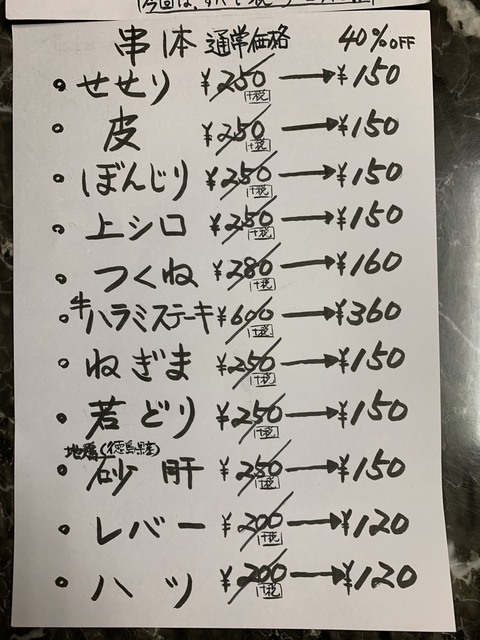 串1本 通常価格 40%OFF
・せせり ¥250 +税 → ¥150
・皮 ¥250 +税 → ¥150
・ぼんじり ¥250 +税 → ¥150
・上シロ ¥250 +税 → ¥150
・つくね ¥280 +税 → ¥160
・牛ハラミステーキ ¥600 +税 → ¥360
・ねぎま ¥250 +税 → ¥150
・若どり ¥250 +税 → ¥150
地鶏(徳島県産)
・砂肝 ¥250 +税 → ¥150
・レバー ¥200 +税 → ¥120
・ハツ ¥200 +税 → ¥120